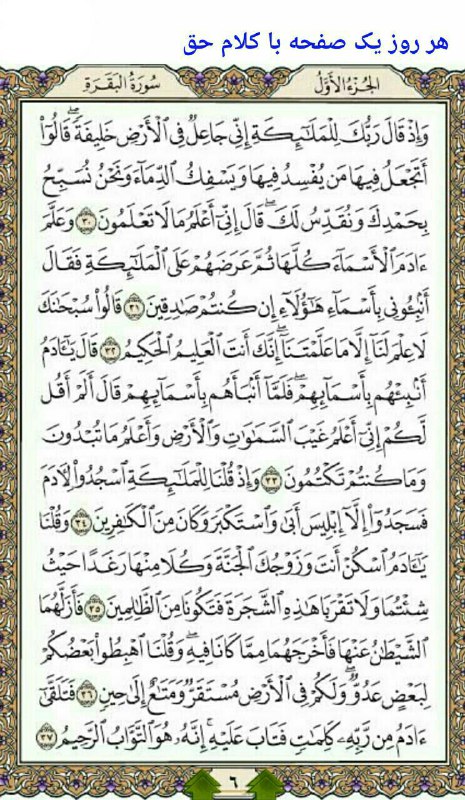 هر روز یک صفحه با کلام حق
الجُزْءُ الأَوَّلُ
سُورَةُ البَقَرَةِ
وَإِذْ قَالَ رَبُّكَ لِلْمَلَٰٓئِكَةِ إِنِّى جَاعِلٌ فِى ٱلْأَرْضِ خَلِيفَةً ۖ قَالُوٓا۟
أَتَجْعَلُ فِيهَا مَن يُفْسِدُ فِيهَا وَيَسْفِكُ ٱلدِّمَآءَ وَنَحْنُ نُسَبِّحُ
بِحَمْدِكَ وَنُقَدِّسُ لَكَ ۖ قَالَ إِنِّىٓ أَعْلَمُ مَا لَا تَعْلَمُونَ ٣٠ وَعَلَّمَ
ءَادَمَ ٱلْأَسْمَآءَ كُلَّهَا ثُمَّ عَرَضَهُمْ عَلَى ٱلْمَلَٰٓئِكَةِ فَقَالَ
أَنۢبِـُٔونِى بِأَسْمَآءِ هَٰٓؤُلَآءِ إِن كُنتُمْ صَٰدِقِينَ ٣١ قَالُوا۟ سُبْحَٰنَكَ
لَا عِلْمَ لَنَآ إِلَّا مَا عَلَّمْتَنَآ ۖ إِنَّكَ أَنتَ ٱلْعَلِيمُ ٱلْحَكِيمُ ٣٢ قَالَ يَٰٓـَٔادَمُ
أَنۢبِئْهُم بِأَسْمَآئِهِمْ ۖ فَلَمَّآ أَنۢبَأَهُم بِأَسْمَآئِهِمْ قَالَ أَلَمْ أَقُل
لَّكُمْ إِنِّىٓ أَعْلَمُ غَيْبَ ٱلسَّمَٰوَٰتِ وَٱلْأَرْضِ وَأَعْلَمُ مَا تُبْدُونَ
وَمَا كُنتُمْ تَكْتُمُونَ ٣٣ وَإِذْ قُلْنَا لِلْمَلَٰٓئِكَةِ ٱسْجُدُوا۟ لِـَٔادَمَ
فَسَجَدُوٓا۟ إِلَّآ إِبْلِيسَ أَبَىٰ وَٱسْتَكْبَرَ وَكَانَ مِنَ ٱلْكَٰفِرِينَ ٣٤ وَقُلْنَا
يَٰٓـَٔادَمُ ٱسْكُنْ أَنتَ وَزَوْجُكَ ٱلْجَنَّةَ وَكُلَا مِنْهَا رَغَدًا حَيْثُ
شِئْتُمَا وَلَا تَقْرَبَا هَٰذِهِ ٱلشَّجَرَةَ فَتَكُونَا مِنَ ٱلظَّٰلِمِينَ ٣٥ فَأَزَلَّهُمَا
ٱلشَّيْطَٰنُ عَنْهَا فَأَخْرَجَهُمَا مِمَّا كَانَا فِيهِ ۖ وَقُلْنَا ٱهْبِطُوا۟ بَعْضُكُمْ
لِبَعْضٍ عَدُوٌّ ۖ وَلَكُمْ فِى ٱلْأَرْضِ مُسْتَقَرٌّ وَمَتَٰعٌ إِلَىٰ حِينٍ ٣٦ فَتَلَقَّىٰٓ
ءَادَمُ مِن رَّبِّهِۦ كَلِمَٰتٍ فَتَابَ عَلَيْهِ ۚ إِنَّهُۥ هُوَ ٱلتَّوَّابُ ٱلرَّحِيمُ ٣٧
٦